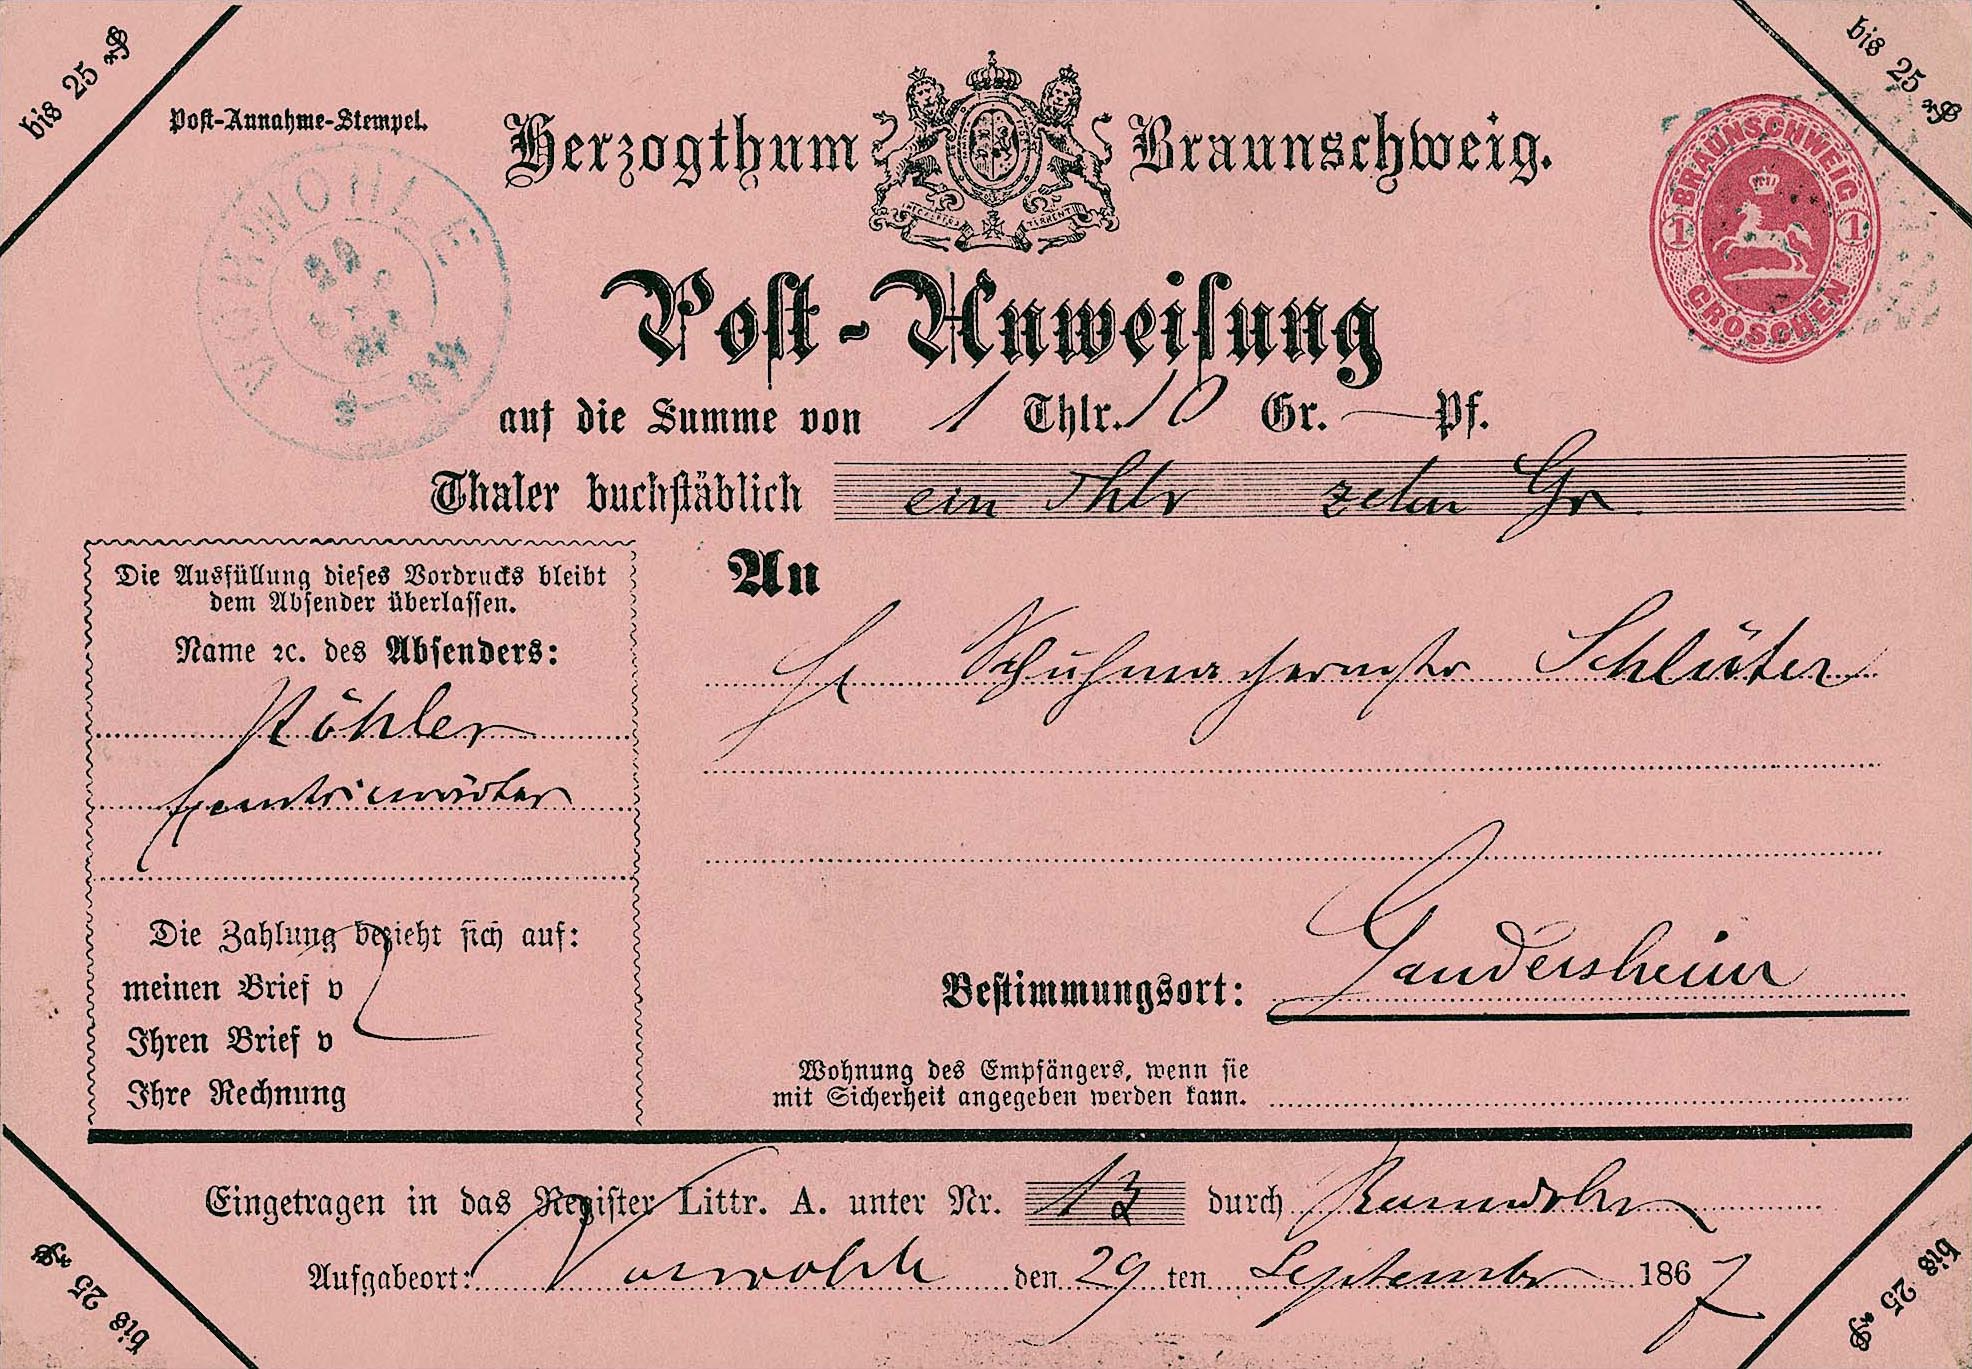 bis 25 ₰
bis 25 ₰
Post-Annahme-Stempel.
VORWOHLE
29
Herzogthum Braunschweig.
BRAUNSCHWEIG
1 1
GROSCHEN
Post-Anweisung
auf die Summe von 1 Thlr. 10 Gr. — Pf.
Thaler buchstäblich ein Thlr zehn Gr
Die Ausfüllung dieses Vordrucks bleibt
dem Absender überlassen.
Name ꝛc. des Absenders:
Köhler
An
H Schuhmachermstr Schlüter
Die Zahlung bezieht sich auf:
meinen Brief v
Ihren Brief v
Ihre Rechnung
Bestimmungsort: Gandersheim
Wohnung des Empfängers, wenn sie
mit Sicherheit angegeben werden kann.
Eingetragen in das Register Littr. A. unter Nr. 13 durch
Aufgabeort: Vorwohle den 29 ten September 1867
bis 25 ₰
bis 25 ₰